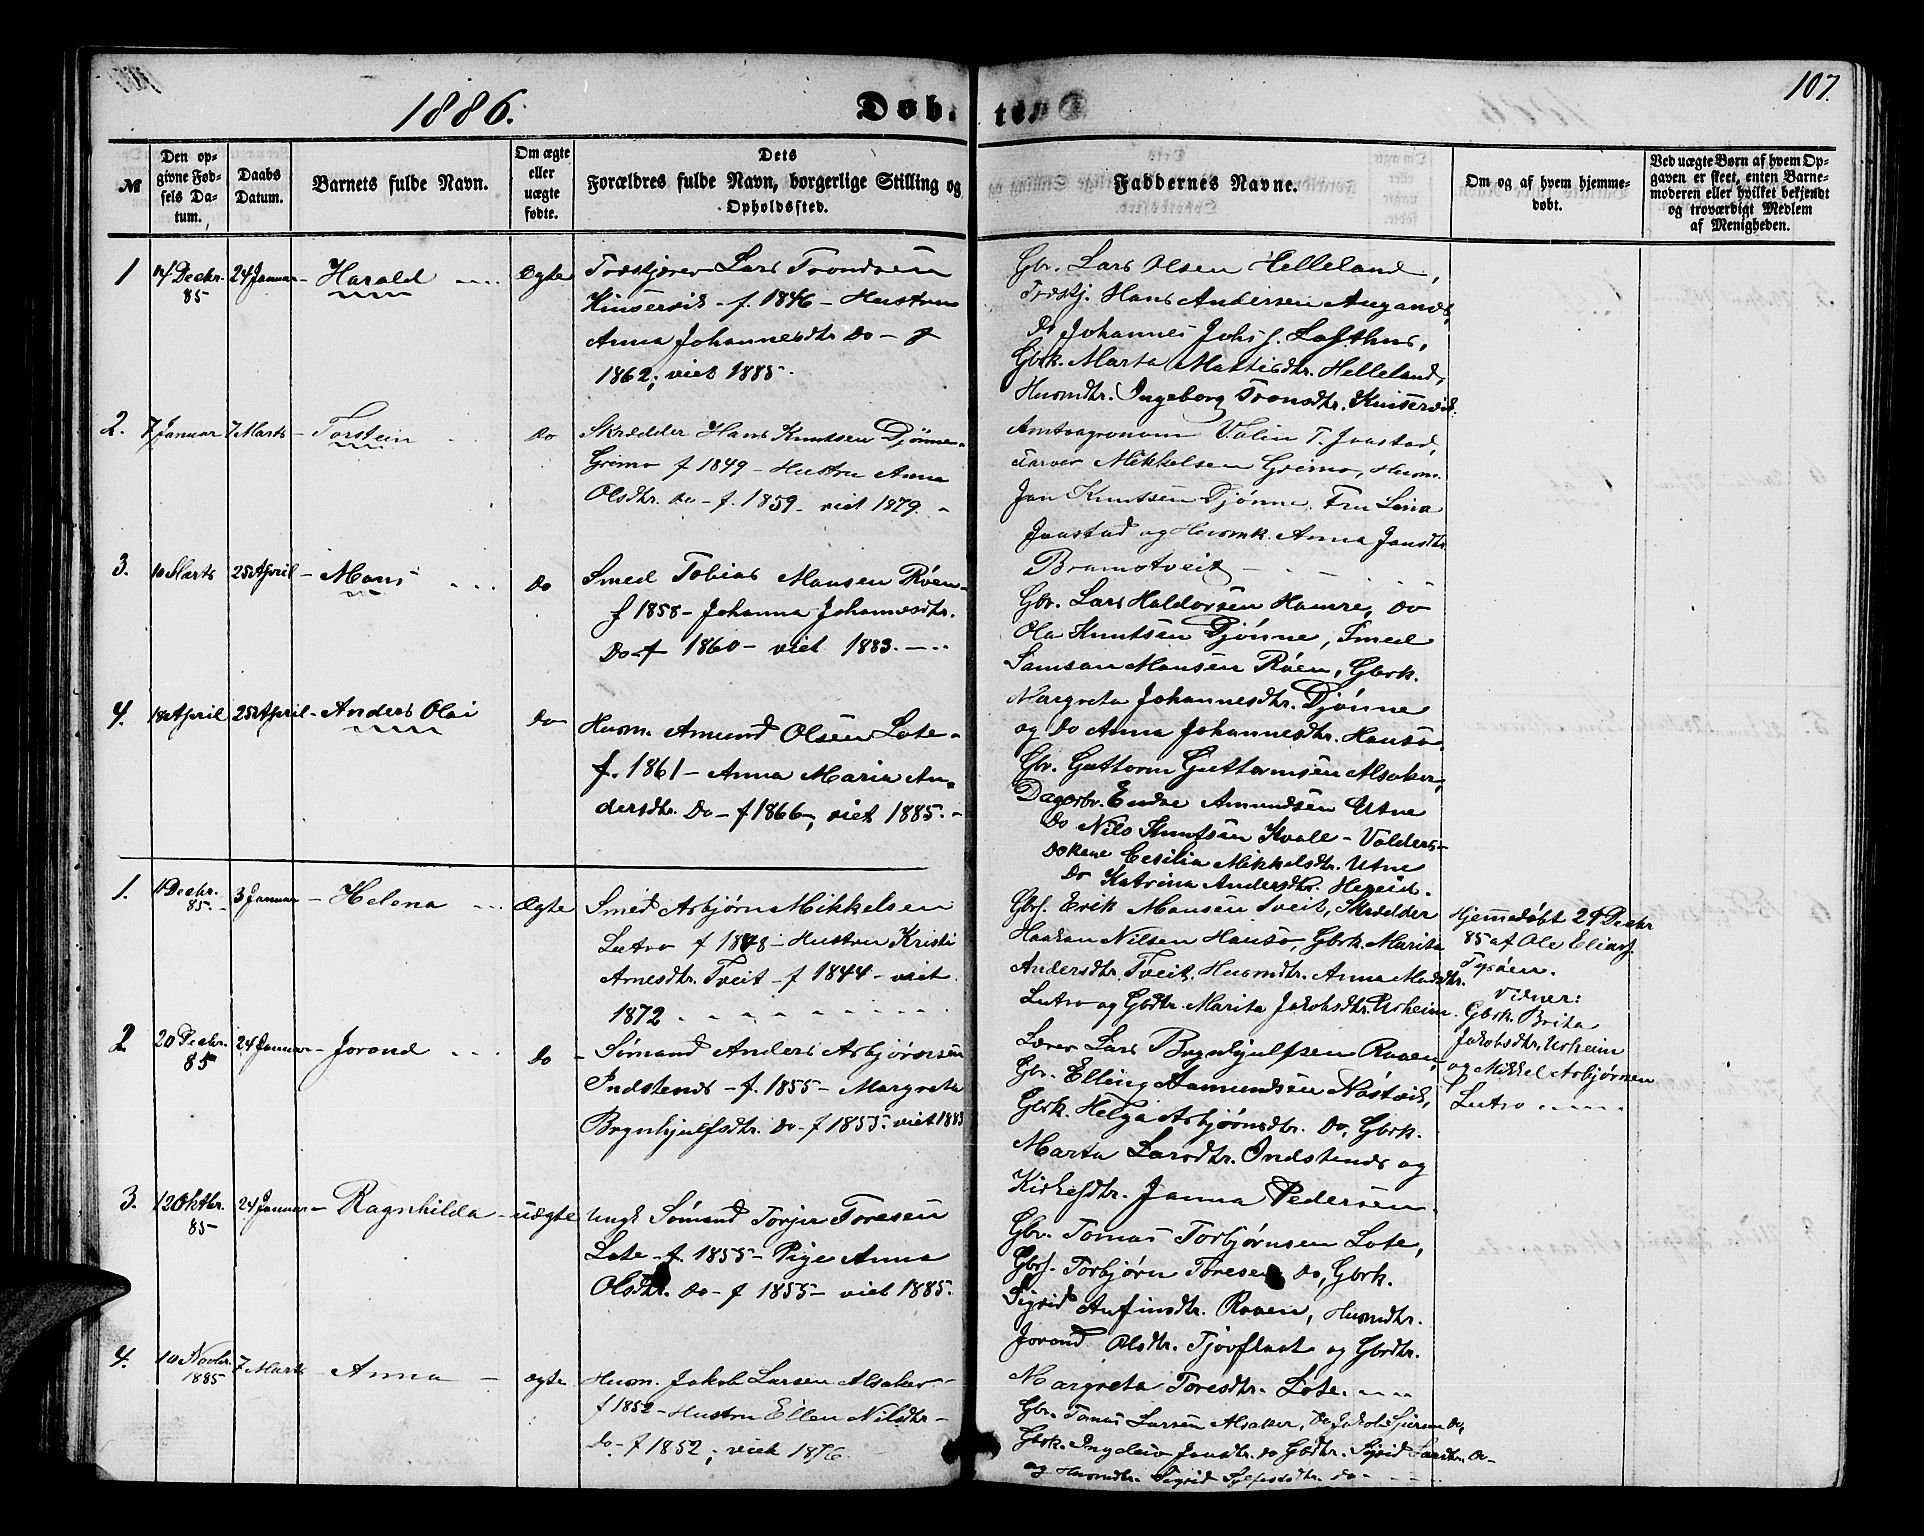 1886.
Døbte.
107.
№
Den opgivne Fødsels Datum.
Daabs Datum.
Barnets fulde Navn.
Om ægte eller uægte fødte.
Dets Forældres fulde Navn, borgerlige Stilling og Opholdssted.
Faddernes Navne.
Om og af hvem hjemmedøbt.
Ved uægte Børn af hvem Opgaven er skeet, enten Barnemoderen eller hvilket bekjendt og troværdigt Medlem af Menigheden.
1 14 Decbr. 85 24 Januar Harald Ægte
Træskjærer Lars Trondsen
Kinservik f. 1846 - Hustru
Anna Johannesdtr. Do - f
1862; viet 1885.
Gbr. Lars Olsen Helleland,
Træskj. Hans Andersen Augands,
Do Johannes Johs. s. Lofthus,
Gbrk. Marta Mattisdtr. Helleland,
Husmdtr. Ingeborg Tronsdtr. Kinservik.
2. 7 Januar 7 Marts Torstein Do
Skrædder Hans Knutsen Djønne
Grimo f 1849 - Hustru Anna
Olsdtr. Do - f. 1859 - viet 1879.
Amtsagronom Valin T. Jaastad,
Farver Mikkelsen Grimo, Husm.
Jan Knutsen Djønne, Fru Lina
Jaastad og Husmk. Anna Jansdtr.
Bramotveit
3. 10 Marts 25 April Mons Do
Smed Tobias Monsen Røen
f 1858 - Johanna Johannesdtr.
Do - f 1860 - viet 1883.
Gbr. Lars Haldorsen Hamre, Do
Ola Knutsen Djønne, Smed
Samson Monsen Røen, Gbrk.
Margreta Johannesdtr. Djønne
og Do Anna Johannesdtr. Hauso
4. 18 April 25 April Anders Olai Do
Husm. Amund Olsen Lote
f. 1861 - Anna Maria An-
dersdtr. Do - f 1866, viet 1885.
Gbr. Guttorm Guttormsen Alsaker,
Dagarb. Endre Amundsen Utne
Do Nils Knutsen Kvale - Valders
Do kone Cesilia Mikkelsdtr. Utne
Do Katrina Andersdtr. Hereid.
1. 11 Decbr. 85. 3 Januar Helena Ægte
Smed Asbjørn Mikkelsen
Lutro f 1848 - Hustru Kristi
Arnesdtr. Tveit - f 1844 - viet
1872
Gbrs. Erik Monsen Tveit, Skrædder
Haakon Nilsen Hauso, Gbrk. Marita
Andersdtr. Tveit, Husmdtr. Anna Madsdtr.
Lutro og Gbdtr. Marita Jakobsdtr. Urheim.
Hjemmedøbt 29 Decbr
85 af Ole Eliass.
Tysøen.
Vidner:
Gbrk. Brita
Jakobsdtr. Urheim
og Mikkel Asbjørnsen
Lutro
2 20 Decbr. 85 24 Januar Jorand Do
Sømand Anders Asbjørnsen
Indstenes - f. 1855 - Margreta
Brynhjulfsdtr. Do - f 1855: viet 1883
Lærer Lars Brynhjulfsen Raaen,
Gbr. Elling Aamundsen Nastvik,
Gbrk. Helga Asbjørnsdtr. Do, Gbrk.
Marta Larsdtr. Indstenes og
Kirkesdtr. Janna Pedersen.
3. 12 Oktbr. 85 24 Januar Ragnhilda uægte
Ungk Sømand Torjer Toresen
Lote - f. 1855 - Pige Anna
Olsdtr. Do - f 1855 - viet 1885.
Gbr. Tomas Torbjørnsen Lote,
Gbrs. Torbjørn Toresen Do, Gbrk.
Sigrid Anfinsdtr. Raaen, Husmdtr.
Jorand Olsdtr. Tjovflaat og Gbrdtr.
Margreta Toresdtr. Lote.
4. 10 Novbr. 1885 7 Marts Anna ægte
Husm. Jakob Larsen Alsaker
f 1852 - Hustru Ellen Nilsdtr
Do - f 1852; viet 1876.
Gbr. Tomas Larsen Alsaker, Do Jakob Do,
Gbrk. Jonsdtr. Do Gbdtr. Sigrid Larsdtr. Do
og Husmdtr. Sigrid Do